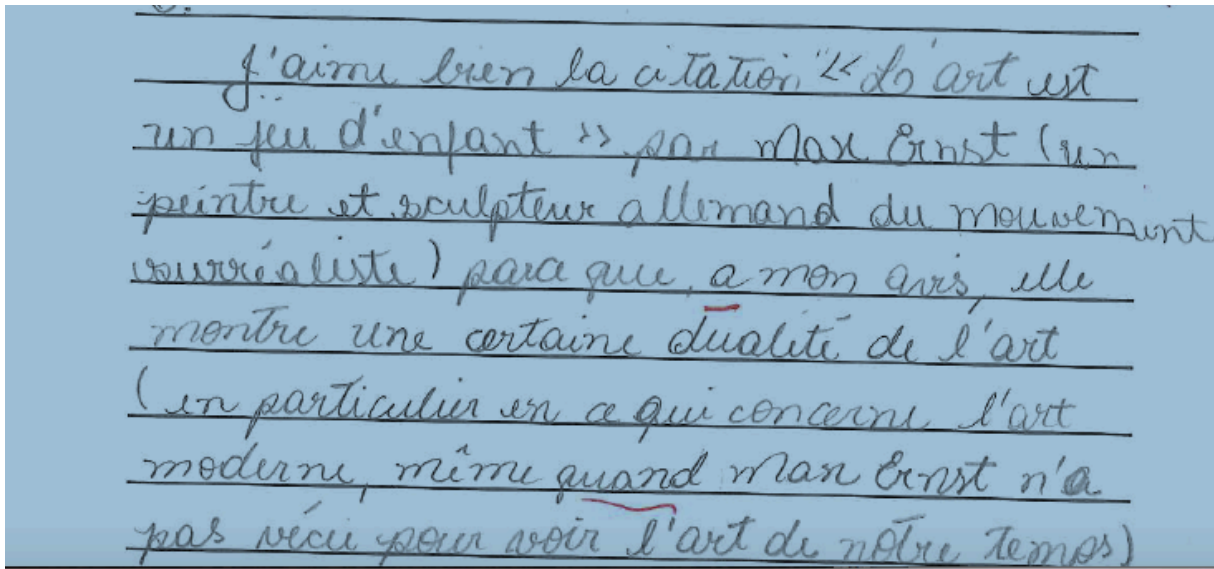 J'aime bien la citation "« L'art est
un jeu d'enfant » par Max Ernst (un
peintre et sculpteur allemand du mouvement
surréaliste) parce que, a mon avis, elle
montre une certaine dualité de l'art
(en particulier en ce qui concerne l'art
moderne, même quand Max Ernst n'a
pas vécu pour voir l'art de nôtre temps)